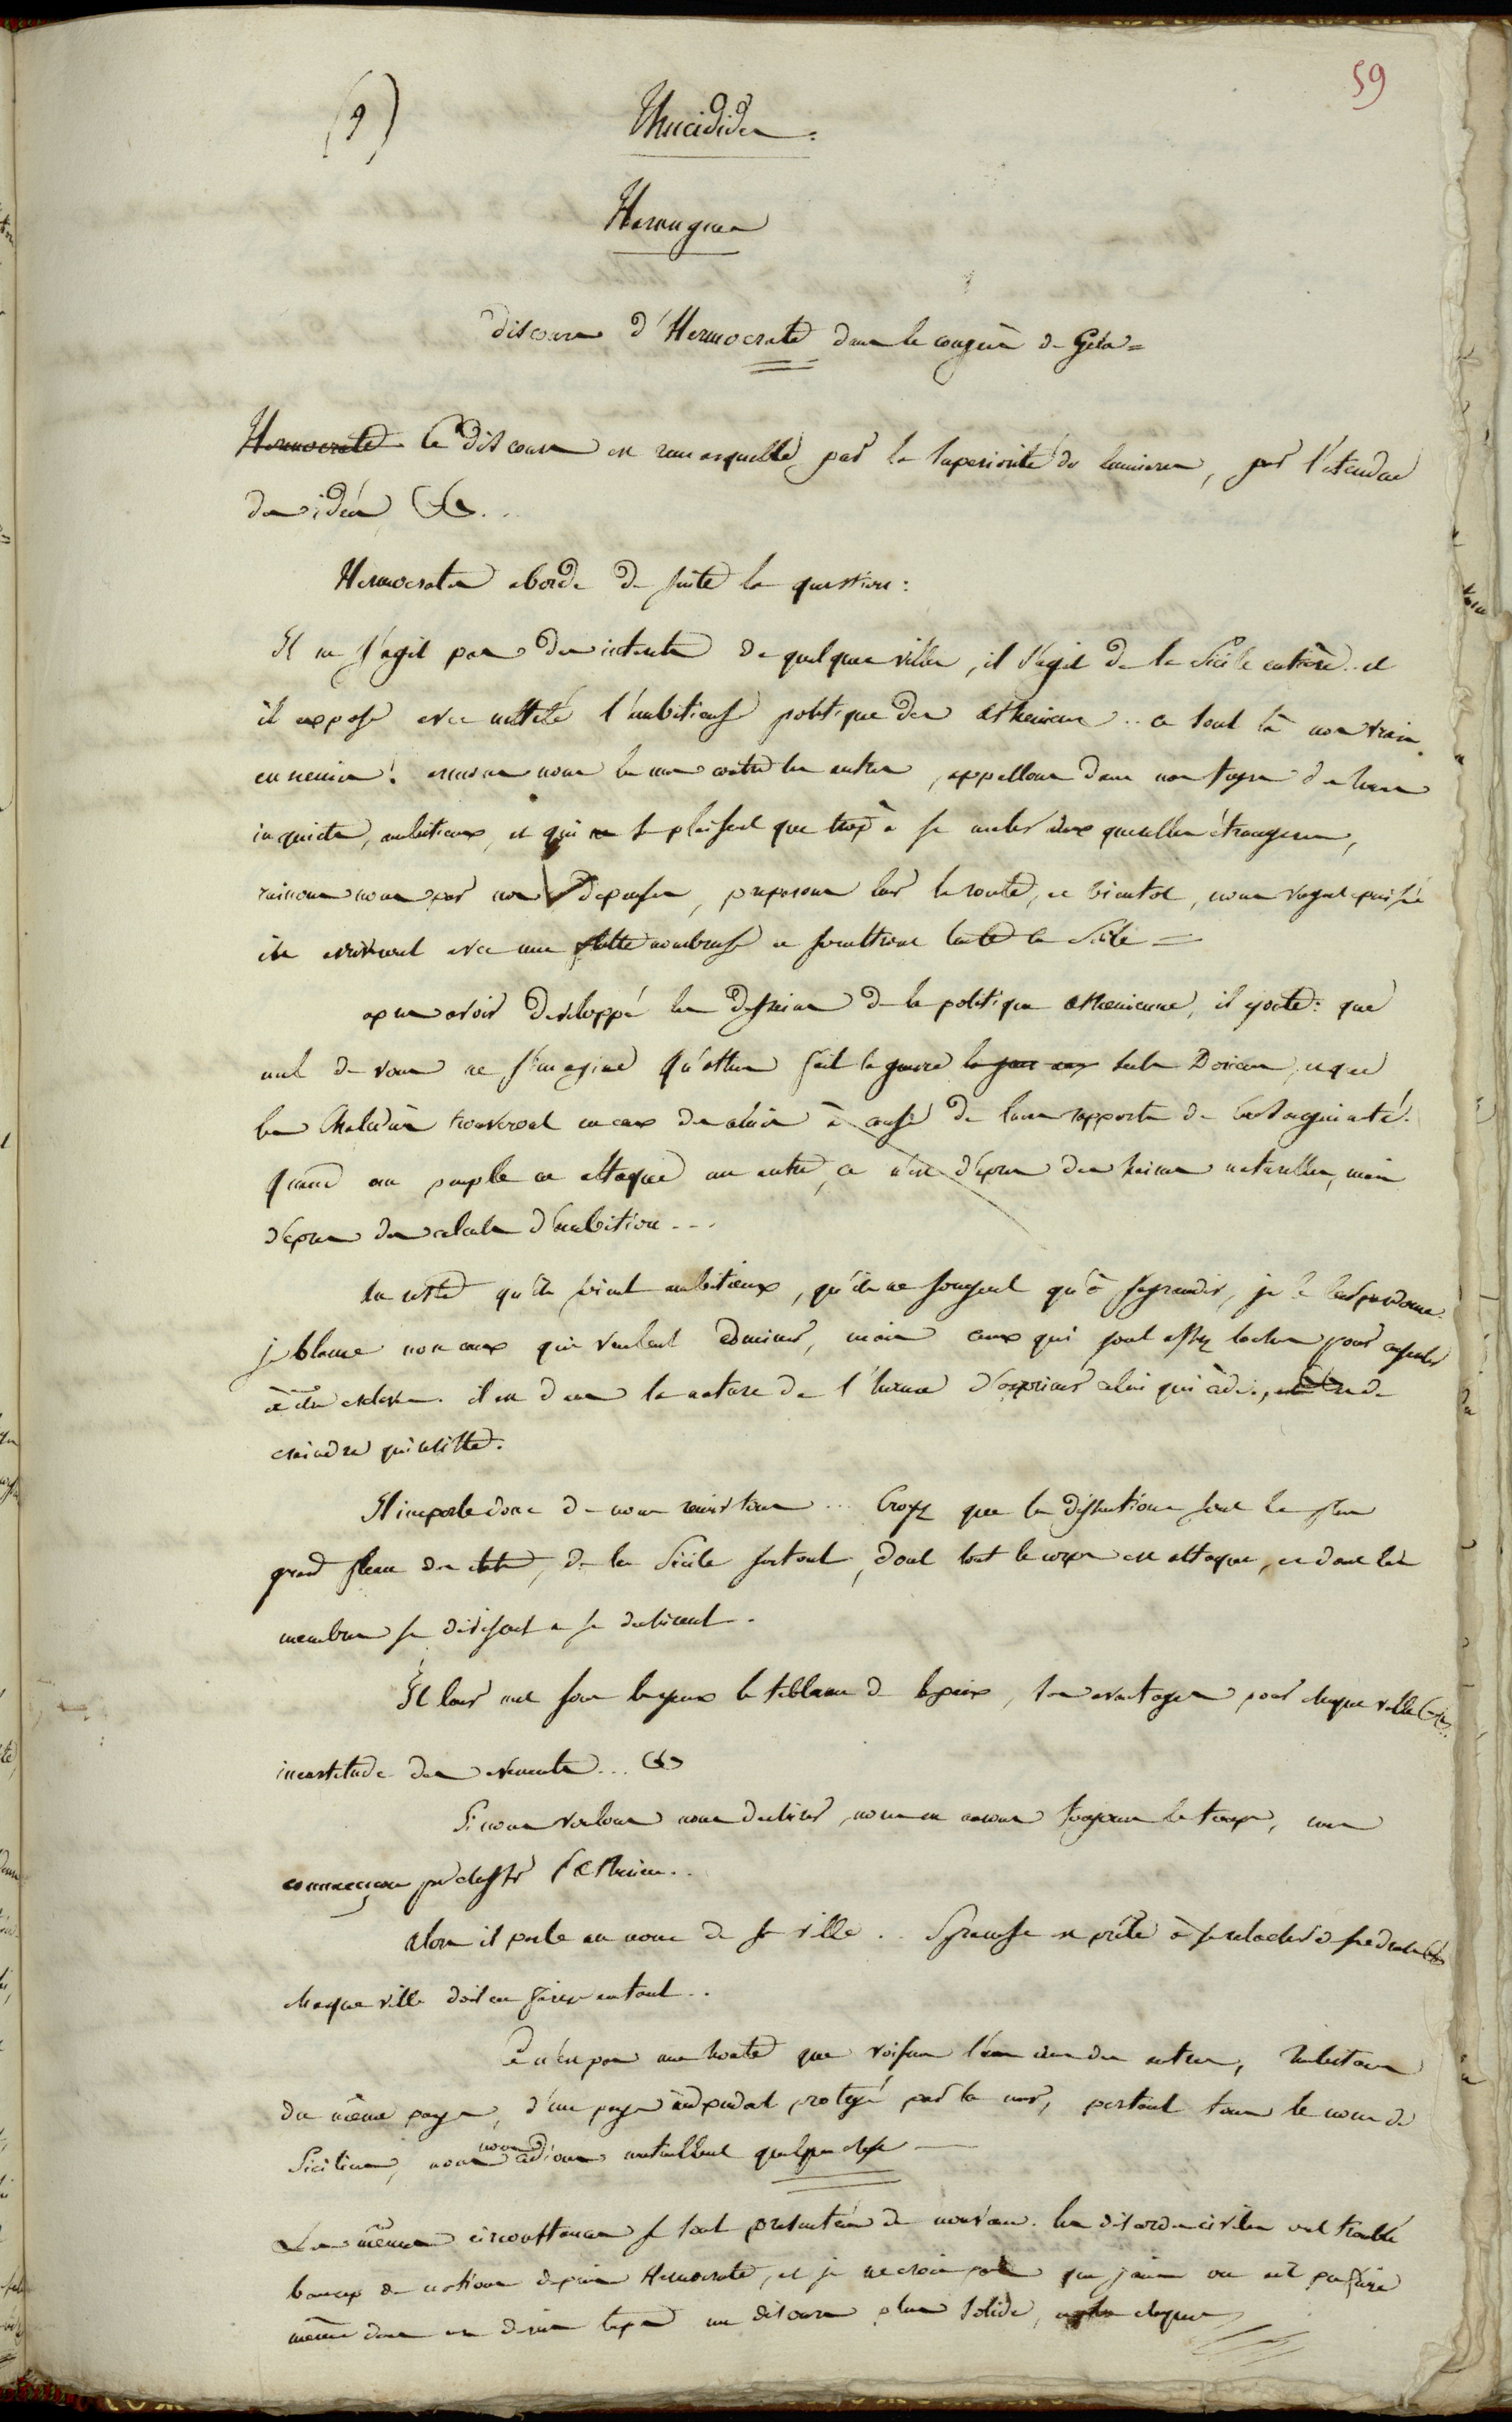 59
(9) Thucidides.
Harangues
discours d'Hermocrate dans le congrès de Gela =
Hermocrate Ce discours est remarquable par la superiorité des lumieres, par l'etendue
des idées &c...
Hermocrates aborde de suite la question :
Il ne s'agit pas des interets de quelques villes, il s'agit de la Sicile entière.. et
il expose avec netteté l'ambitieuse politique des atheniens .. ce sont là nos vrais
ennemis ! armons nous les uns contre les autres, appellons dans nos foyers des hommes
inquiets, ambitieux, et qui ne se plaisent que trop à se meler aux querelles étrangeres,
ruinons nous par nos depenses, preparons leur la route, et bientot, nous voyant epuisés
ils arriveront avec une flotte nombreuse et soumettront toute la Sicile =
apres avoir developpé les desseins de la politique athenienne, il ajoute : que
nul de vous ne s'imagine qu'athenes fait la guerre aux seuls Doriens, et que
les Chalcidiens trouveront en eux des alliés à cause de leurs rapports de consanguinité.
Quand un peuple en attaque un autre, ce n'est d'apres des haines naturelles, mais
d'apres des calculs d'ambition ...
du reste qu'ils soient ambitieux, qu'ils ne songent qu'à s'agrandir, je le leur pardonne.
je blame non ceux qui veulent dominer, mais ceux qui sont assez laches pour consentir
à etre esclaves. il est dans la nature de l'homme d'opprimer celui qui cède, et de
craindre qui resiste.
Il importe donc de nous reunir tous ... Croyez que les dissentions sont le plus
grand fleau des etats, de la Sicile surtout, dont tout le corps est attaqué, et dont les
membres se divisent et se dechirent.
Il leur met sous les yeux le tableau de la paix, ses avantages pour chaque ville &c..
incertitude des evenements ... &c
Si nous voulons nous dechirer, nous en aurons toujours le temps, mais
commençons par chasser l'athenien..
alors il parle au nom de sa ville .. Syracuse est prête à se relacher de ses droits &c
chaque ville doit en faire autant ..
Ce n'est pas une honte que voisins l'un des autres, habitans
du même pays, d'un pays independant protegé par la mer, portant tous le nom de
Siciliens, nous nous cedions mutuellement quelque chose —
Les mêmes circonstances se sont presentées de nouveau. les discordes civiles ont troublé
beaucoup de nations depuis Hermocrate, et je ne crois pas que jamais on ait pu faire
même dans ces derniers temps un discours plus solide,